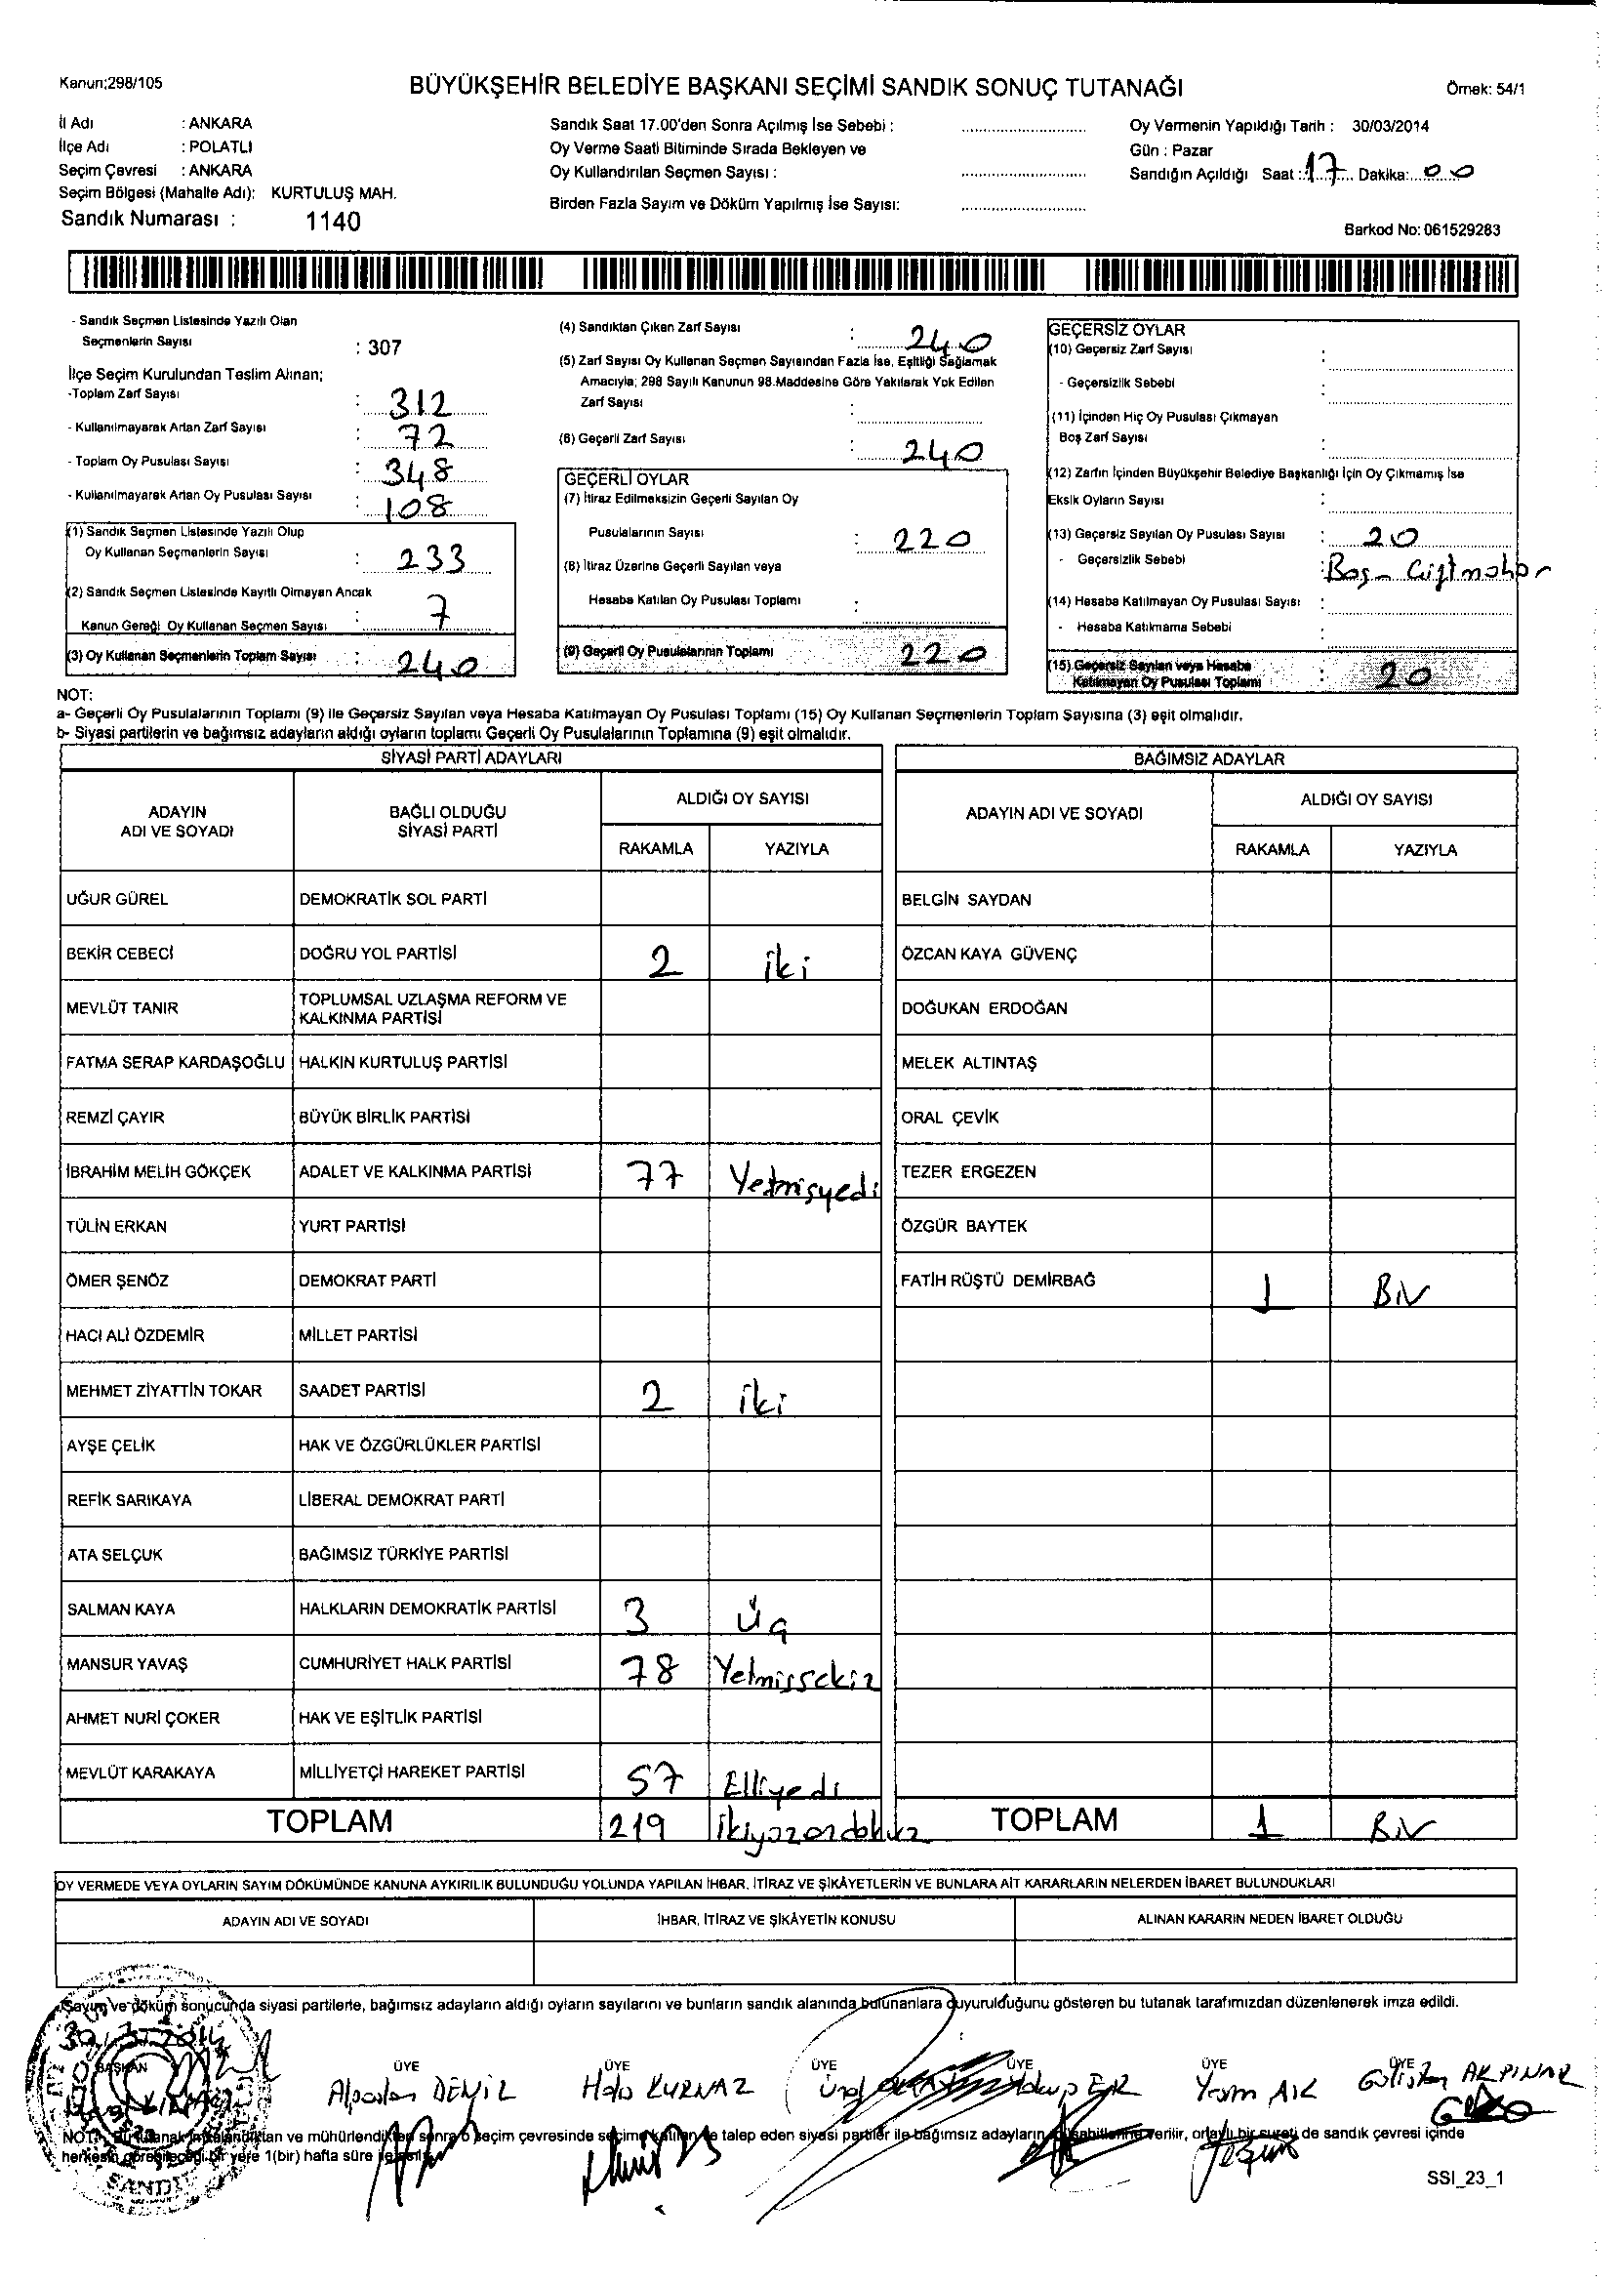 Kanun;298/105
BÜYÜKŞEHİR BELEDİYE BAŞKANI SEÇİMİ SANDIK SONUÇ TUTANAĞI
Örnek: 54/1
İl Adı : ANKARA
İlçe Adı : POLATLI
Seçim Çevresi : ANKARA
Seçim Bölgesi (Mahalle Adı): KURTULUŞ MAH.
Sandık Numarası : 1140
Sandık Saat 17.00'den Sonra Açılmış İse Sebebi :
Oy Verme Saati Bitiminde Sırada Bekleyen ve
Oy Kullandırılan Seçmen Sayısı :
Birden Fazla Sayım ve Döküm Yapılmış İse Sayısı:
Oy Vermenin Yapıldığı Tarih : 30/03/2014
Gün : Pazar
Sandığın Açıldığı Saat : 17 Dakika: 00
Barkod No: 061529283
- Sandık Seçmen Listesinde Yazılı Olan
Seçmenlerin Sayısı : 307
İlçe Seçim Kurulundan Teslim Alınan;
-Toplam Zarf Sayısı : 312
- Kullanılmayarak Artan Zarf Sayısı : 72
- Toplam Oy Pusulası Sayısı : 348
- Kullanılmayarak Artan Oy Pusulası Sayısı : 108
(1) Sandık Seçmen Listesinde Yazılı Olup
Oy Kullanan Seçmenlerin Sayısı : 233
(2) Sandık Seçmen Listesinde Kayıtlı Olmayan Ancak
Kanun Gereği Oy Kullanan Seçmen Sayısı : 7
(3) Oy Kullanan Seçmenlerin Toplam Sayısı : 240
(4) Sandıktan Çıkan Zarf Sayısı : 240
(5) Zarf Sayısı Oy Kullanan Seçmen Sayısından Fazla İse, Eşitliği Sağlamak
Amacıyla; 298 Sayılı Kanunun 98.Maddesine Göre Yakılarak Yok Edilen
Zarf Sayısı :
(6) Geçerli Zarf Sayısı : 240
GEÇERLİ OYLAR
(7) İtiraz Edilmeksizin Geçerli Sayılan Oy
Pusulalarının Sayısı : 220
(8) İtiraz Üzerine Geçerli Sayılan veya
Hesaba Katılan Oy Pusulası Toplamı :
(9) Geçerli Oy Pusulalarının Toplamı 220
GEÇERSİZ OYLAR
(10) Geçersiz Zarf Sayısı :
- Geçersizlik Sebebi :
(11) İçinden Hiç Oy Pusulası Çıkmayan
Boş Zarf Sayısı :
(12) Zarfın İçinden Büyükşehir Belediye Başkanlığı İçin Oy Çıkmamış İse
Eksik Oyların Sayısı :
(13) Geçersiz Sayılan Oy Pusulası Sayısı : 20
- Geçersizlik Sebebi : Boş - Çift mühür
(14) Hesaba Katılmayan Oy Pusulası Sayısı :
- Hesaba Katılmama Sebebi :
(15) Geçersiz Sayılan veya Hesaba
Katılmayan Oy Pusulası Toplamı : 20
NOT:
a- Geçerli Oy Pusulalarının Toplamı (9) ile Geçersiz Sayılan veya Hesaba Katılmayan Oy Pusulası Toplamı (15) Oy Kullanan Seçmenlerin Toplam Sayısına (3) eşit olmalıdır.
b- Siyasi partilerin ve bağımsız adayların aldığı oyların toplamı Geçerli Oy Pusulalarının Toplamına (9) eşit olmalıdır.
SİYASİ PARTİ ADAYLARI
ADAYIN ADI VE SOYADI BAĞLI OLDUĞU SİYASİ PARTİ ALDIĞI OY SAYISI
RAKAMLA YAZIYLA
UĞUR GÜREL DEMOKRATİK SOL PARTİ
BEKİR CEBECİ DOĞRU YOL PARTİSİ 2 iki
MEVLÜT TANIR TOPLUMSAL UZLAŞMA REFORM VE KALKINMA PARTİSİ
FATMA SERAP KARDAŞOĞLU HALKIN KURTULUŞ PARTİSİ
REMZİ ÇAYIR BÜYÜK BİRLİK PARTİSİ
İBRAHİM MELİH GÖKÇEK ADALET VE KALKINMA PARTİSİ 77 Yetmişyedi
TÜLİN ERKAN YURT PARTİSİ
ÖMER ŞENÖZ DEMOKRAT PARTİ
HACI ALİ ÖZDEMİR MİLLET PARTİSİ
MEHMET ZİYATTİN TOKAR SAADET PARTİSİ 2 iki
AYŞE ÇELİK HAK VE ÖZGÜRLÜKLER PARTİSİ
REFİK SARIKAYA LİBERAL DEMOKRAT PARTİ
ATA SELÇUK BAĞIMSIZ TÜRKİYE PARTİSİ
SALMAN KAYA HALKLARIN DEMOKRATİK PARTİSİ 3 Üç
MANSUR YAVAŞ CUMHURİYET HALK PARTİSİ 78 Yetmissekiz
AHMET NURİ ÇOKER HAK VE EŞİTLİK PARTİSİ
MEVLÜT KARAKAYA MİLLİYETÇİ HAREKET PARTİSİ 57 Elliyedi
TOPLAM 219 ikiyüzondokuz
BAĞIMSIZ ADAYLAR
ADAYIN ADI VE SOYADI ALDIĞI OY SAYISI
RAKAMLA YAZIYLA
BELGİN SAYDAN
ÖZCAN KAYA GÜVENÇ
DOĞUKAN ERDOĞAN
MELEK ALTINTAŞ
ORAL ÇEVİK
TEZER ERGEZEN
ÖZGÜR BAYTEK
FATİH RÜŞTÜ DEMİRBAĞ 1 Bir
TOPLAM 1 Bir
OY VERMEDE VEYA OYLARIN SAYIM DÖKÜMÜNDE KANUNA AYKIRILIK BULUNDUĞU YOLUNDA YAPILAN İHBAR, İTİRAZ VE ŞİKÂYETLERİN VE BUNLARA AİT KARARLARIN NELERDEN İBARET BULUNDUKLARI
ADAYIN ADI VE SOYADI İHBAR, İTİRAZ VE ŞİKÂYETİN KONUSU ALINAN KARARIN NEDEN İBARET OLDUĞU
Sayım ve döküm sonucunda siyasi partilerle, bağımsız adayların aldığı oyların sayılarını ve bunların sandık alanında bulunanlara duyurulduğunu gösteren bu tutanak tarafımızdan düzenlenerek imza edildi.
BAŞKAN ÜYE ÜYE ÜYE ÜYE ÜYE ÜYE
Alpaslan DENİZ KURNAZ AKPINAR
NOT: Bu tutanak imzalandıktan ve mühürlendikten sonra o seçim çevresinde seçime katılan ve talep eden siyasi partiler ile bağımsız adayların verilir, onaylı bir sureti de sandık çevresi içinde
herkesin görebileceği bir yere 1(bir) hafta süre ile asılır.
SSI_23_1